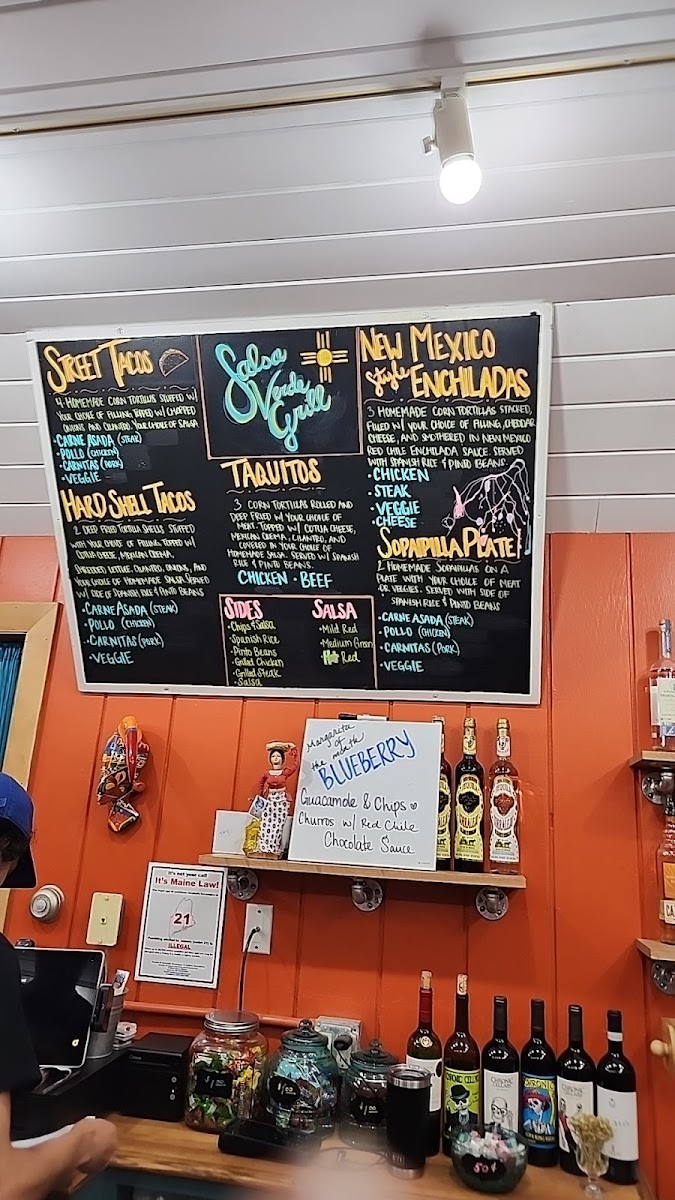 STREET TACOS
4 HOMEMADE CORN TORTILLAS STUFFED W/
YOUR CHOICE OF FILLING. TOPPED W/ CHOPPED
ONIONS AND CILANTRO. YOUR CHOICE OF SALSA
• CARNE ASADA (STEAK)
• POLLO (CHICKEN)
• CARNITAS (PORK)
• VEGGIE
HARD SHELL TACOS
2 DEEP FRIED TORTILLA SHELLS STUFFED
WITH YOUR CHOICE OF FILLING. TOPPED W/
COTIJA CHEESE, MEXICAN CREMA,
SHREDDED LETTUCE, CILANTRO, ONIONS, AND
YOUR CHOICE OF HOMEMADE SALSA. SERVED
W/ SIDE OF SPANISH RICE & PINTO BEANS
• CARNE ASADA (STEAK)
• POLLO (CHICKEN)
• CARNITAS (PORK)
• VEGGIE
Salsa
Verde
Grill
TAQUITOS
3 CORN TORTILLAS ROLLED AND
DEEP FRIED W/ YOUR CHOICE OF
MEAT. TOPPED W/ COTIJA CHEESE,
MEXICAN CREMA, CILANTRO, AND
COVERED IN YOUR CHOICE OF
HOMEMADE SALSA. SERVED W/ SPANISH
RICE & PINTO BEANS.
CHICKEN • BEEF
SIDES
• Chips & Salsa
• Spanish Rice
• Pinto Beans
• Grilled Chicken
• Grilled Steak
• Salsa
SALSA
• Mild Red
• Medium Green
Hot Red
NEW MEXICO
Style ENCHILADAS
3 HOMEMADE CORN TORTILLAS STACKED,
FILLED W/ YOUR CHOICE OF FILLING, CHEDDAR
CHEESE, AND SMOTHERED IN NEW MEXICO
RED CHILE ENCHILADA SAUCE. SERVED
WITH SPANISH RICE & PINTO BEANS.
• CHICKEN
• STEAK
• VEGGIE
• CHEESE
SOPAIPILLA PLATE
2 HOMEMADE SOPAIPILLAS ON A
PLATE WITH YOUR CHOICE OF MEAT
OR VEGGIES. SERVED WITH SIDE OF
SPANISH RICE & PINTO BEANS
• CARNE ASADA (STEAK)
• POLLO (CHICKEN)
• CARNITAS (PORK)
• VEGGIE
Margarita
of
the month
BLUEBERRY
Guacamole & Chips
Churros w/ Red Chile
Chocolate Sauce
It's not your call
It's Maine Law!
21
ILLEGAL
50¢